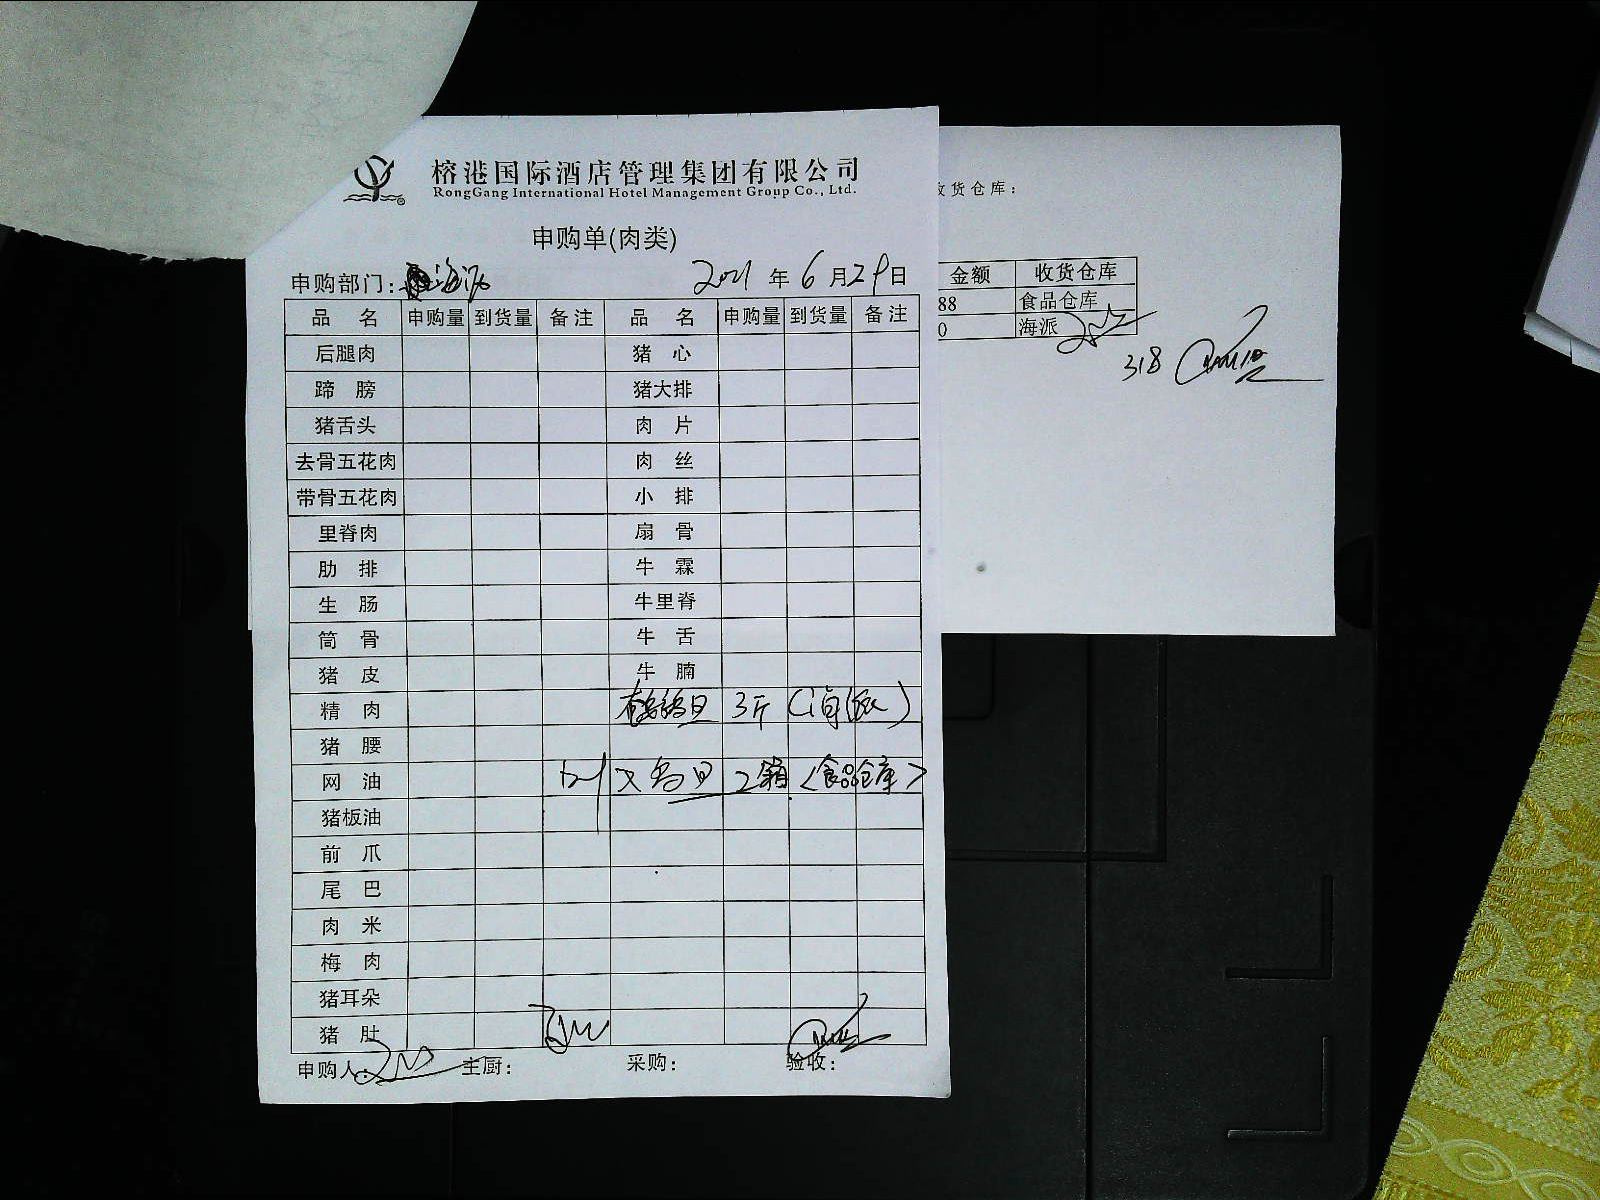 榕港国际酒店管理集团有限公司
RongGang International Hotel Management Group Co., Ltd.
申购单(肉类)
申购部门: 海派 2021 年 6 月 29 日
品 名 申购量 到货量 备注 品 名 申购量 到货量 备注
后腿肉 猪 心
蹄 膀 猪大排
猪舌头 肉 片
去骨五花肉 肉 丝
带骨五花肉 小 排
里脊肉 扇 骨
肋 排 牛 霖
生 肠 牛里脊
筒 骨 牛 舌
猪 皮 牛 腩
精 肉 鹌鹑旦 3斤 (海派)
猪 腰
网 油 2箱 <食品仓库>
猪板油
前 爪
尾 巴
肉 米
梅 肉
猪耳朵
猪 肚
申购人: 主厨: 采购: 验收:
收货仓库:
金额 收货仓库
88 食品仓库
0 海派
318